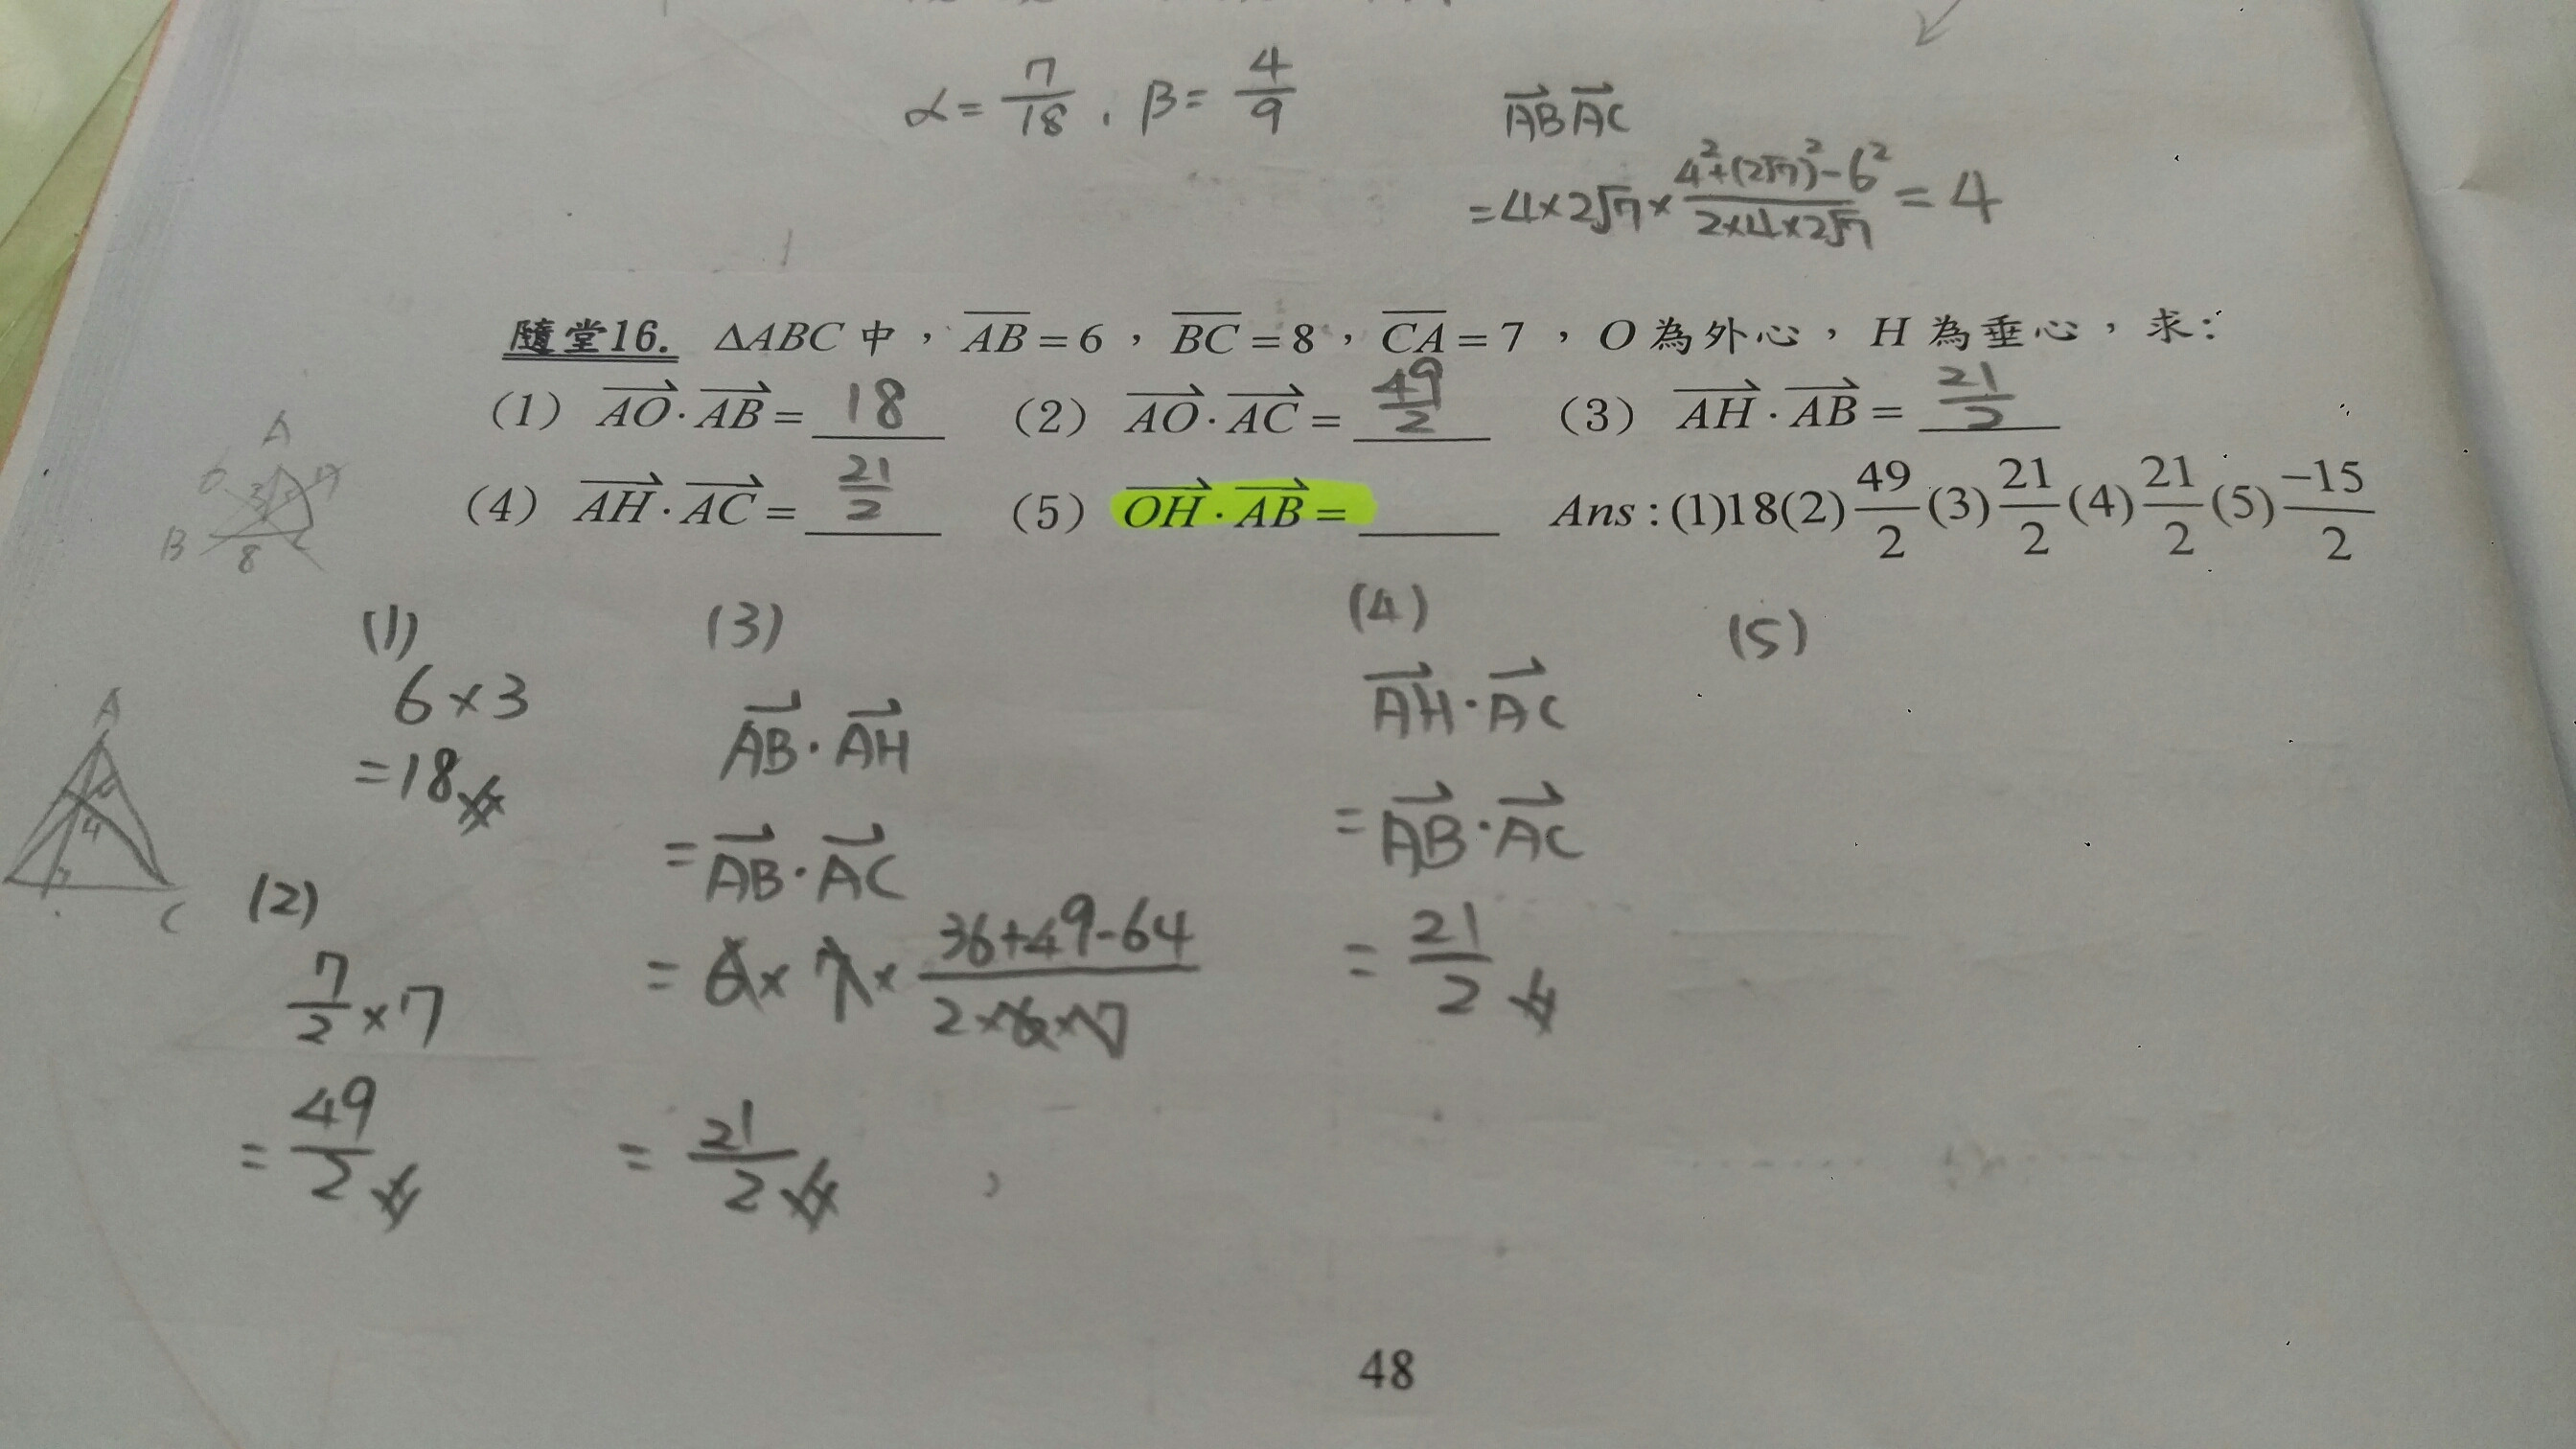 α = 7/18 , β = 4/9
AB AC
= 4×2√7 × (4²+(2√7)²-6²)/(2×4×2√7) = 4
隨堂16. ΔABC 中，AB = 6，BC = 8，CA = 7，O 為外心，H 為垂心，求：
(1) AO · AB = 18 (2) AO · AC = 49/2 (3) AH · AB = 21/2
(4) AH · AC = 21/2 (5) OH · AB = ____ Ans : (1)18(2) 49/2 (3) 21/2 (4) 21/2 (5) -15/2
A
6 3 7
B 8 C
(1)
6×3
=18
(2)
7/2 ×7
= 49/2
(3)
AB · AH
= AB · AC
= 6 × 7 × (36+49-64)/(2×6×7)
= 21/2
(4)
AH · AC
= AB · AC
= 21/2
(5)
A
C
48